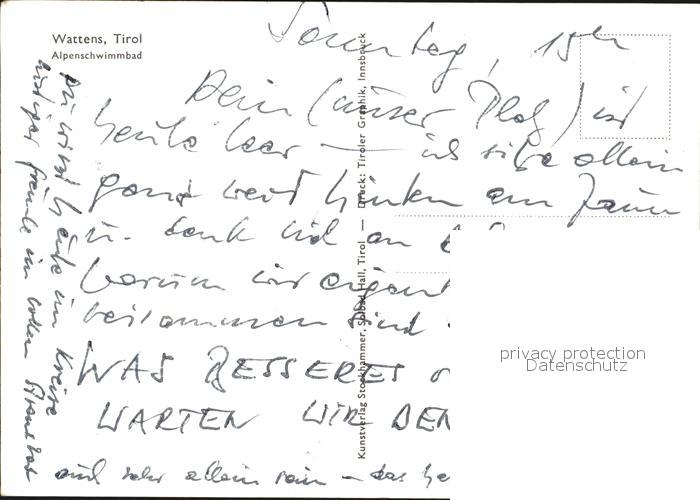 Wattens, Tirol
Alpenschwimmbad
Sonntag, 15h
Dein (unser Platz) ist
heute leer — ich sitze allein
ganz weit hinten am Zaun
u. denk und an
warum wir eigent
beisammen sind
WAS BESSERES
WARTEN WIR DEN
und sehr allein sein – das
Du wirst heute im Kreise
lustiger Freunde im vollen
Kunstverlag Stockhammer, Solbad Hall, Tirol — Druck: Tiroler Graphik, Innsbruck
privacy protection
Datenschutz